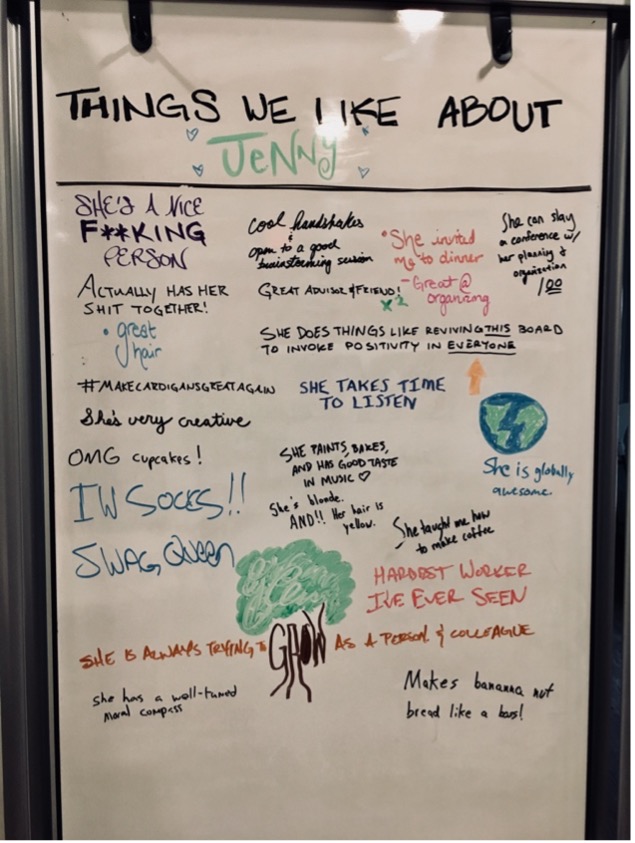 THINGS WE LIKE ABOUT
JeNNy
SHE'S A NICE
F**KING
PERSON
cool handshakes
&
open to a good
brainstorming session
• She invited
me to dinner
She can slay
a conference w/
her planning &
organization
100
ACTUALLY HAS HER
SHIT TOGETHER!
GREAT ADVISOR & FRIEND!
x2
- Great @
organizing
• great
hair
SHE DOES THINGS LIKE REVIVING THIS BOARD
TO INVOKE POSITIVITY IN EVERYONE
#MAKECARDIGANSGREATAGAIN
SHE TAKES TIME
TO LISTEN
She's very creative
OMG cupcakes!
SHE PAINTS, BAKES,
AND HAS GOOD TASTE
IN MUSIC ♡
She is globally
awesome.
IW SOCKS!!
She's blonde.
AND!! Her hair is
yellow.
She taught me how
to make coffee
SWAG QUEEN
HARDEST WORKER
I'VE EVER SEEN
SHE IS ALWAYS TRYING to GROW AS A PERSON & COLLEAGUE
she has a well-tuned
moral compass
Makes bananna nut
bread like a boss!